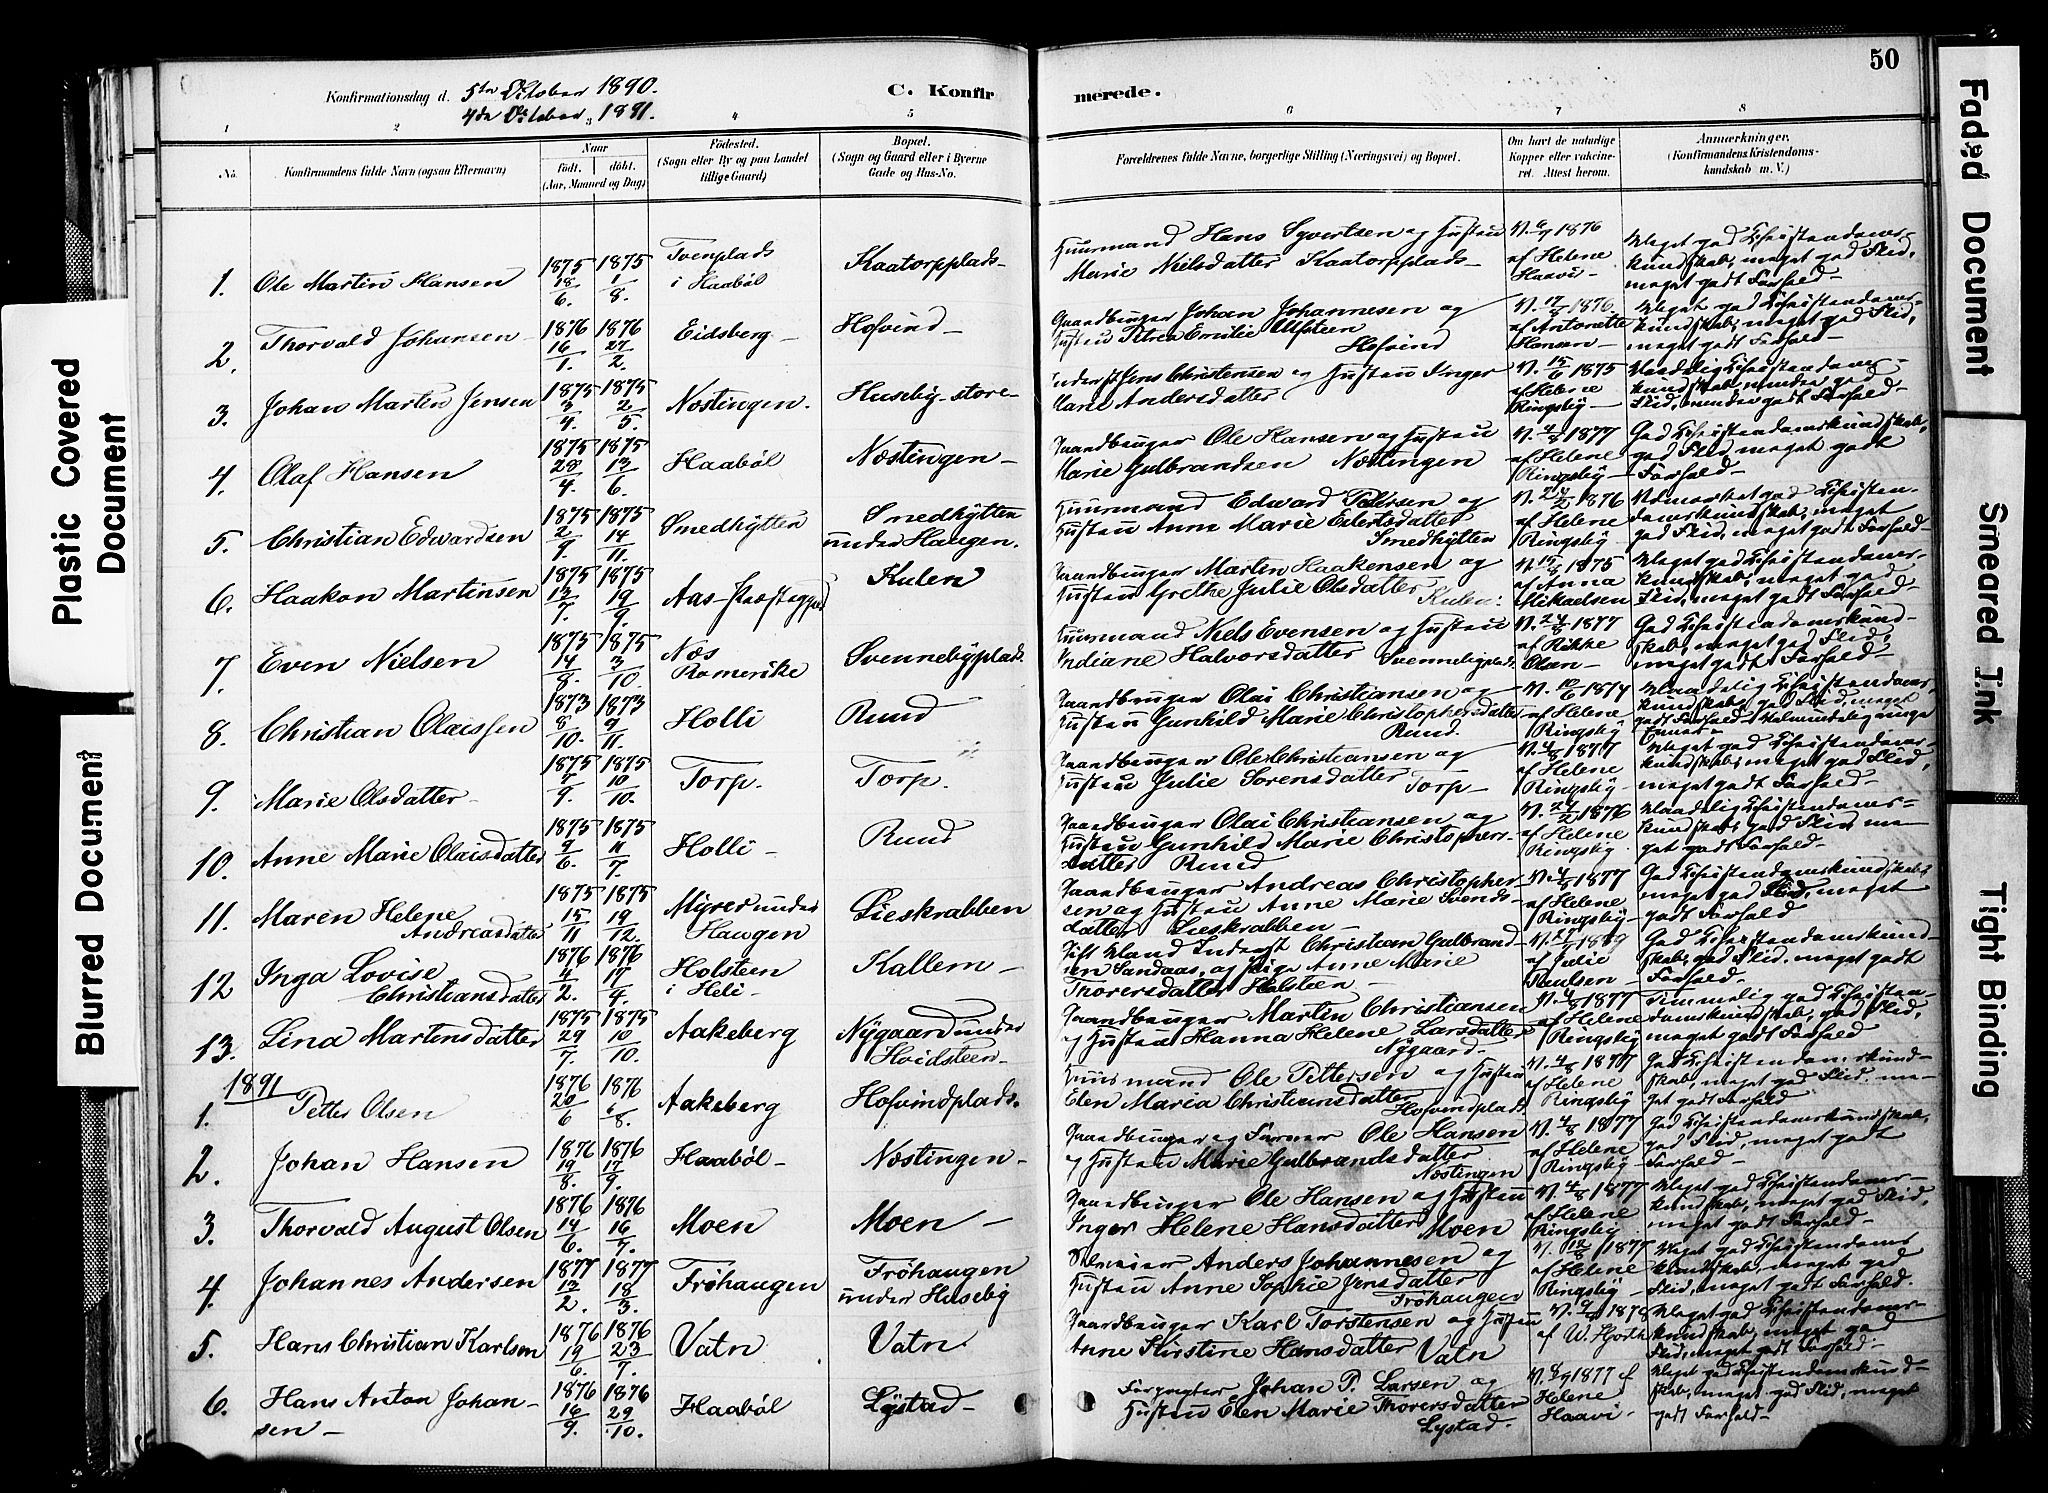 50
Konfirmationsdag d. 5te October 1890.
4de October 1891.
C. Konfir
merede.
1 2 3 4 5 6 7 8
No.
Konfirmandens fulde Navn (ogsaa Efternavn)
Naar
født. døbt.
(Aar, Maaned og Dag)
Fødested.
(Sogn eller By og paa Landet
tillige Gaard)
Bopæl.
(Sogn og Gaard eller i Byerne
Gade og Hus-No.
Forældrenes fulde Navne, borgerlige Stilling (Næringsvei) og Bopæl.
Om havt de naturlige
Kopper eller vaksine-
ret. Attest herom.
Anmærkninger.
(Konfirmandens Kristendoms-
kundskab m. V.)
1. Ole Martin Hansen 1875 18/6. 1875 1/8. Tvenplads i Haabøl Kaatorpplads-
Huusmand Hans Syvertsen og Hustru
Marie Nielsdatter Kaatorpplads-
af Helene
Haavi-
Meget god Christendoms-
kundskab, meget god Flid,
meget godt Forhold-
2. Thorvald Johansen 1876 16/1. 1876 27/2. Eidsberg- Hofvind-
Gaardbruger Johan Johannesen og
Hustru Petrea Emilie Ulfsteen
Hofvind
af Antonette
Hansen-
Meget god Christendoms-
kundskab, meget god Flid,
meget godt Forhold-
3. Johan Martin Jensen 1875 3/4. 1875 2/5. Næstingen. Huseby-store-
Inderst Jens Christensen og Hustru Inger
Marie Andersdatter
V. 15/6 1875
af Helene
Ringsby-
Maadelig Christendoms-
kundskab, mindre god
Flid, mindre godt Forhold-
4. Olaf Hansen 1875 28/4. 1875 13/6. Haabøl Næstingen-
Gaardbruger Ole Hansen og Hustru
Marie Gulbrandsen Næstingen
V. 4/8 1877
af Helene
Ringsby-
God Christendomskundskab,
god Flid, meget godt
Forhold-
5. Christian Edwardsen 1875 2/9. 1875 14/11. Smedhytten Smedhytten
under Haugen.
Huusmand Edward Pettersen og
Hustru Anne Marie Eilertsdatter
Smedhytten
af Helene
Ringsby-
Udmærket god Christen-
domskundskab, meget
god Flid, meget godt Forhold-
6. Haakon Martinsen 1875 13/7. 1875 19/9. Aas- Kulen
Gaardbruger Martin Haakensen og
Hustru Grethe Julie Olsdatter Kulen.
V. 15/8 1875
af Anna
Mikaelsen
Meget god Christendoms-
kundskab, meget god
Flid, meget godt Forhold-
7. Even Nielsen 1875 14/8. 1875 3/10. Næs
Romerike Svennebyplads.
Huusmand Niels Evensen og Hustru
Indiane Halvorsdatter Svennebyplads.
V. 24/8 1877
af Rikke
Olsen-
God Christendomskund-
skab, meget god Flid,
meget godt Forhold-
8. Christian Olaissen 1873 8/10. 1873 9/11. Holli Ruud
Gaardbruger Olai Christiansen og
Hustru Gunhild Marie Christophersdatter
Ruud.
V. 10/6 1874
af Helene
Ringsby
Maadelig Christendoms-
kundskab, god Flid, meget
godt Forhold.
9. Marie Olsdatter- 1875 7/9. 1875 10/10. Torp. Torp.
Gaardbruger Ole Christiansen og
Hustru Julie Sorensdatter Torp-
V. 4/8 1877
af Helene
Ringsby-
Meget god Christendoms-
kundskab, meget god Flid,
meget godt Forhold-
10. Anne Marie Olaisdatter 1875 9/6. 1875 11/7. Holli- Ruud
Gaardbruger Olai Christiansen og
Hustru Gunhild Marie Christophers-
datter Ruud
V. 24/2 1876
af Helene
Ringsby.
Maadelig Christendoms-
kundskab, god Flid, me-
get godt Forhold-
11. Maren Helene
Andreasdatter 1875 15/11 1875 19/12. Myrer under
Haugen Lieskrabben
Gaardbruger Andreas Christopher-
sen og Hustru Anne Marie Svends-
datter Lieskrabben-
V. 4/8 1877
af Helene
Ringsby-
God Christendomskundskab,
meget god Flid, meget
godt Forhold
12 Inga Lovise
Christiansdatter 1876 4/2. 1876 17/4. Holsteen
i Heli- Kallem-
Gift Mand Inderst Christian Gulbrand-
sen Sandaas, og Pige Anne Marie
Thorersdatter Holsteen-
af Julie
Paulsen-
God Christendomskund-
skab, god Flid, meget godt
Forhold-
13. Lina Martinsdatter 1875 29/7. 1875 10/10. Aakeberg Nygaard under
Hvidsteen-
Gaardbruger Martin Christiansen
og Hustru Hanna Helene Larsdatter
Nygaard-
V. 4/8 1877
af Helene
Ringsby
Temmelig god Christen-
domskundskab, god Flid,
meget godt Forhold
1891
1. Petter Olsen 1876 20/6 1876 6/8. Aakeberg Hofvindplads.
Huusmand Ole Pettersen og Hustru
Elen Maria Christiansdatter
Hofvindplads
V. 4/8 1877
af Helene
Ringsby
God Christendomskund-
skab, meget god Flid, me-
get godt Forhold
2. Johan Hansen 1876 19/8. 1876 17/9. Haabøl- Næstingen-
Gaardbruger og Farmer Ole Hansen
og Hustru Marie Gulbrandsdatter
Næstingen
V. 4/8 1877
af Helene
Ringsby-
God Christendomskundskab,
god Flid, meget godt
Forhold-
3. Thorvald August Olsen 1876 14/6. 1876 16/7. Moen Moen-
Gaardbruger Ole Hansen og Hustru
Inger Helene Hansdatter Moen
V. 4/8 1877
af Helene
Ringsby
Meget god Christendoms-
kundskab, meget god Flid,
meget godt Forhold-
4. Johannes Andersen 1877 13/2. 1877 18/3. Frøhaugen Frøhaugen
under Huseby
Selveier Anders Johannesen og
Hustru Anne Sophie Jensdatter
Frøhaugen
V. 12/8 1877
af Helene
Ringsby-
Meget god Christendoms
kundskab, meget god
Flid, meget godt Forhold.
5. Hans Christian Karlsen 1876 19/6. 1876 23/7. Vatn Vatn
Gaardbruger Karl Torstensen og Hustru
Anne Kirstine Hansdatter Vatn
af W. Hjorth
Meget god Christendoms-
kundskab, meget god
Flid, meget godt Forhold-
6. Hans Anton Johan-
sen- 1876 16/9. 1876 29/10. Haabøl Lystad-
Forpagter Johan P. Larsen og
Hustru Elen Marie Thorersdatter
Lystad.
Helene
Haavi-
Meget god Christendomskund-
skab, meget god Flid, meget
godt Forhold-
Plastic Covered
Document
Blurred Document
Faded Document
Smeared Ink
Tight Binding